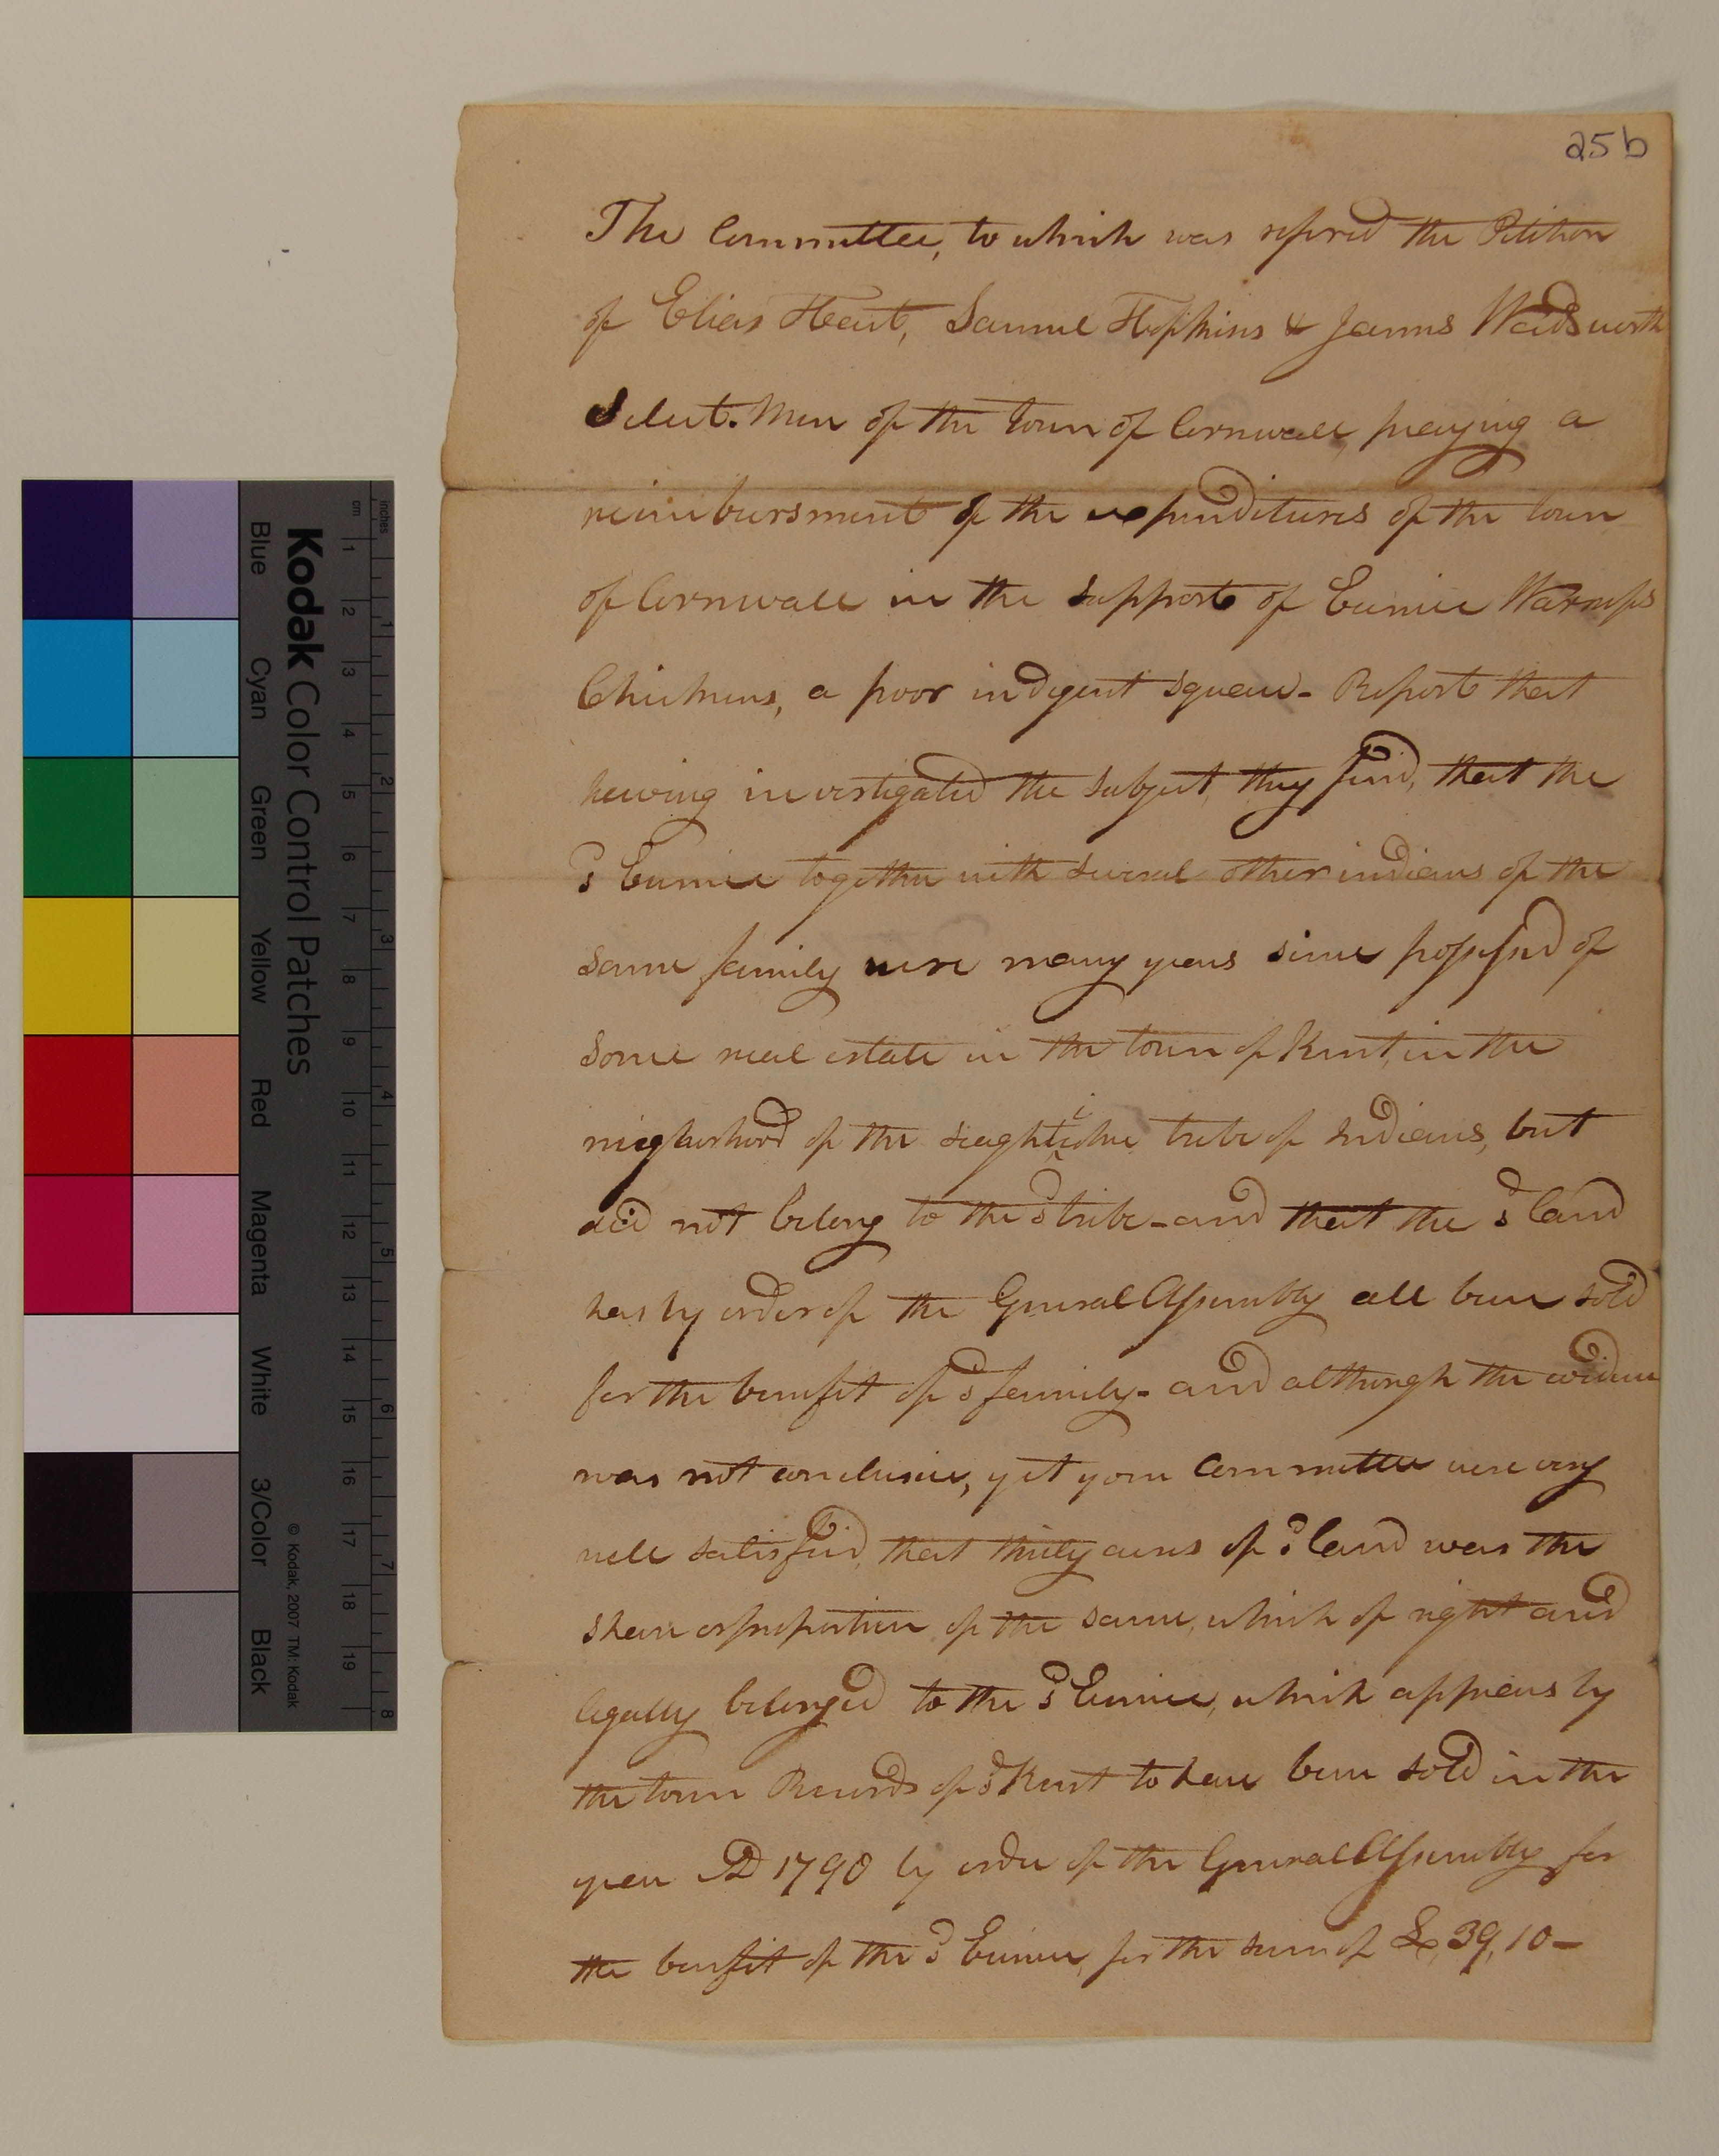 25b
The Committee, to which was referd the Petition
of Elias Heart, Samuel Hopkins & James Wadsworth
Select-Men of the town of Cornwall, praying a
reimbursment of the expenditures of the town
of Cornwall in the support of Eunice Warrups
Chickens, a poor indigent squaw - Report that
having investigated the subject, they find, that the
sd Eunice together with several other indians of the
same family were many years since possessed of
some real estate in the town of Kent, in the
neighborhood of the tribe of Indians, but
did not belong to the sd tribe - and that the sd land
has by order of the General Assembly all been sold
for the benefit of sd family - and although the evidence
was not conclusive, yet your Committee were very
well satisfied, that thirty acres of sd land was the
share or proportion of the same, which of right and
legally belonged to the sd Eunice, which appears by
the town Records of sd Kent to have been sold in the
year AD 1790 by order of the General Assembly for
the benefit of the sd Eunice, for the sum of £ 39,10 -
Kodak Color Control Patches
© Kodak, 2007 TM: Kodak
Blue
Cyan
Green
Yellow
Red
Magenta
White
3/Color
Black
inches 1 2 3 4 5 6 7 8
cm 1 2 3 4 5 6 7 8 9 10 11 12 13 14 15 16 17 18 19